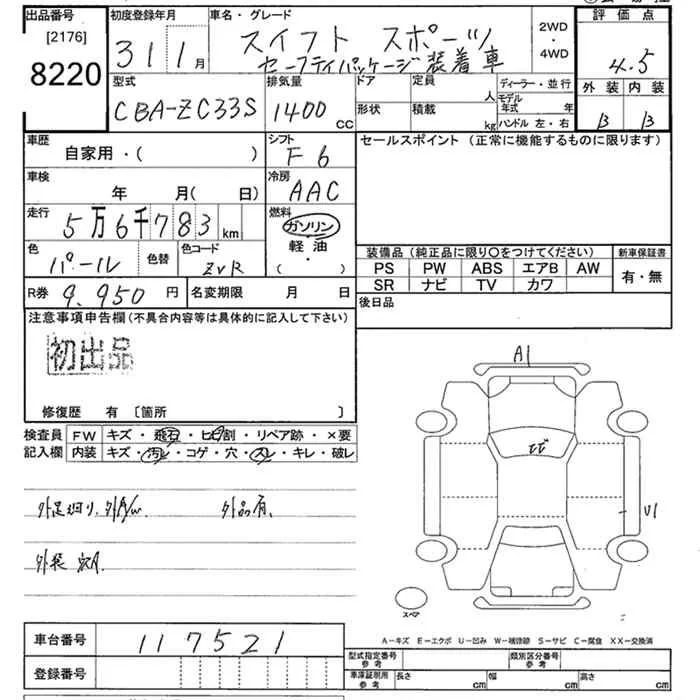 出品番号
[2176]
8220
初度登録年月
31 1 月
車名・グレード
スイフト スポーツ
セーフティパッケージ装着車
2WD
・
4WD
評価点
4.5
外装 内装
B B
型式
CBA-ZC33S
排気量
1400 CC
ドア
定員
人
形状
積載
kg
ディーラー・並行
モデル年式 年
ハンドル 左・右
車歴
自家用・( )
シフト
F6
セールスポイント (正常に機能するものに限ります)
車検
年 月( 日)
冷房
AAC
走行
5万6千783 km
燃料
ガソリン
・
軽油
・
( )
色
パール
色替
色コード
ZVR
装備品 (純正品に限り〇をつけてください)
PS PW ABS エアB AW
SR ナビ TV カワ
新車保証書
有・無
R券 9.950 円
名変期限 月 日
後日品
注意事項申告欄 (不具合内容等は具体的に記入して下さい)
初出品
修復歴 有 〔箇所 〕
検査員記入欄
FW キズ・飛石・ヒビ割・リペア跡・×要
内装 キズ・汚レ・コゲ・穴・スレ・キレ・破レ
A1
ヒビ
U1
外足廻り.外A/w.
外品有.
外装
スペア
A－キズ E－エクボ U－凹み W－補修跡 S－サビ C－腐食 XX－交換済
車台番号 117521
登録番号
型式指定番号 参考
類別区分番号 参考
車庫証明用 参考
長さ cm
幅 cm
高さ cm